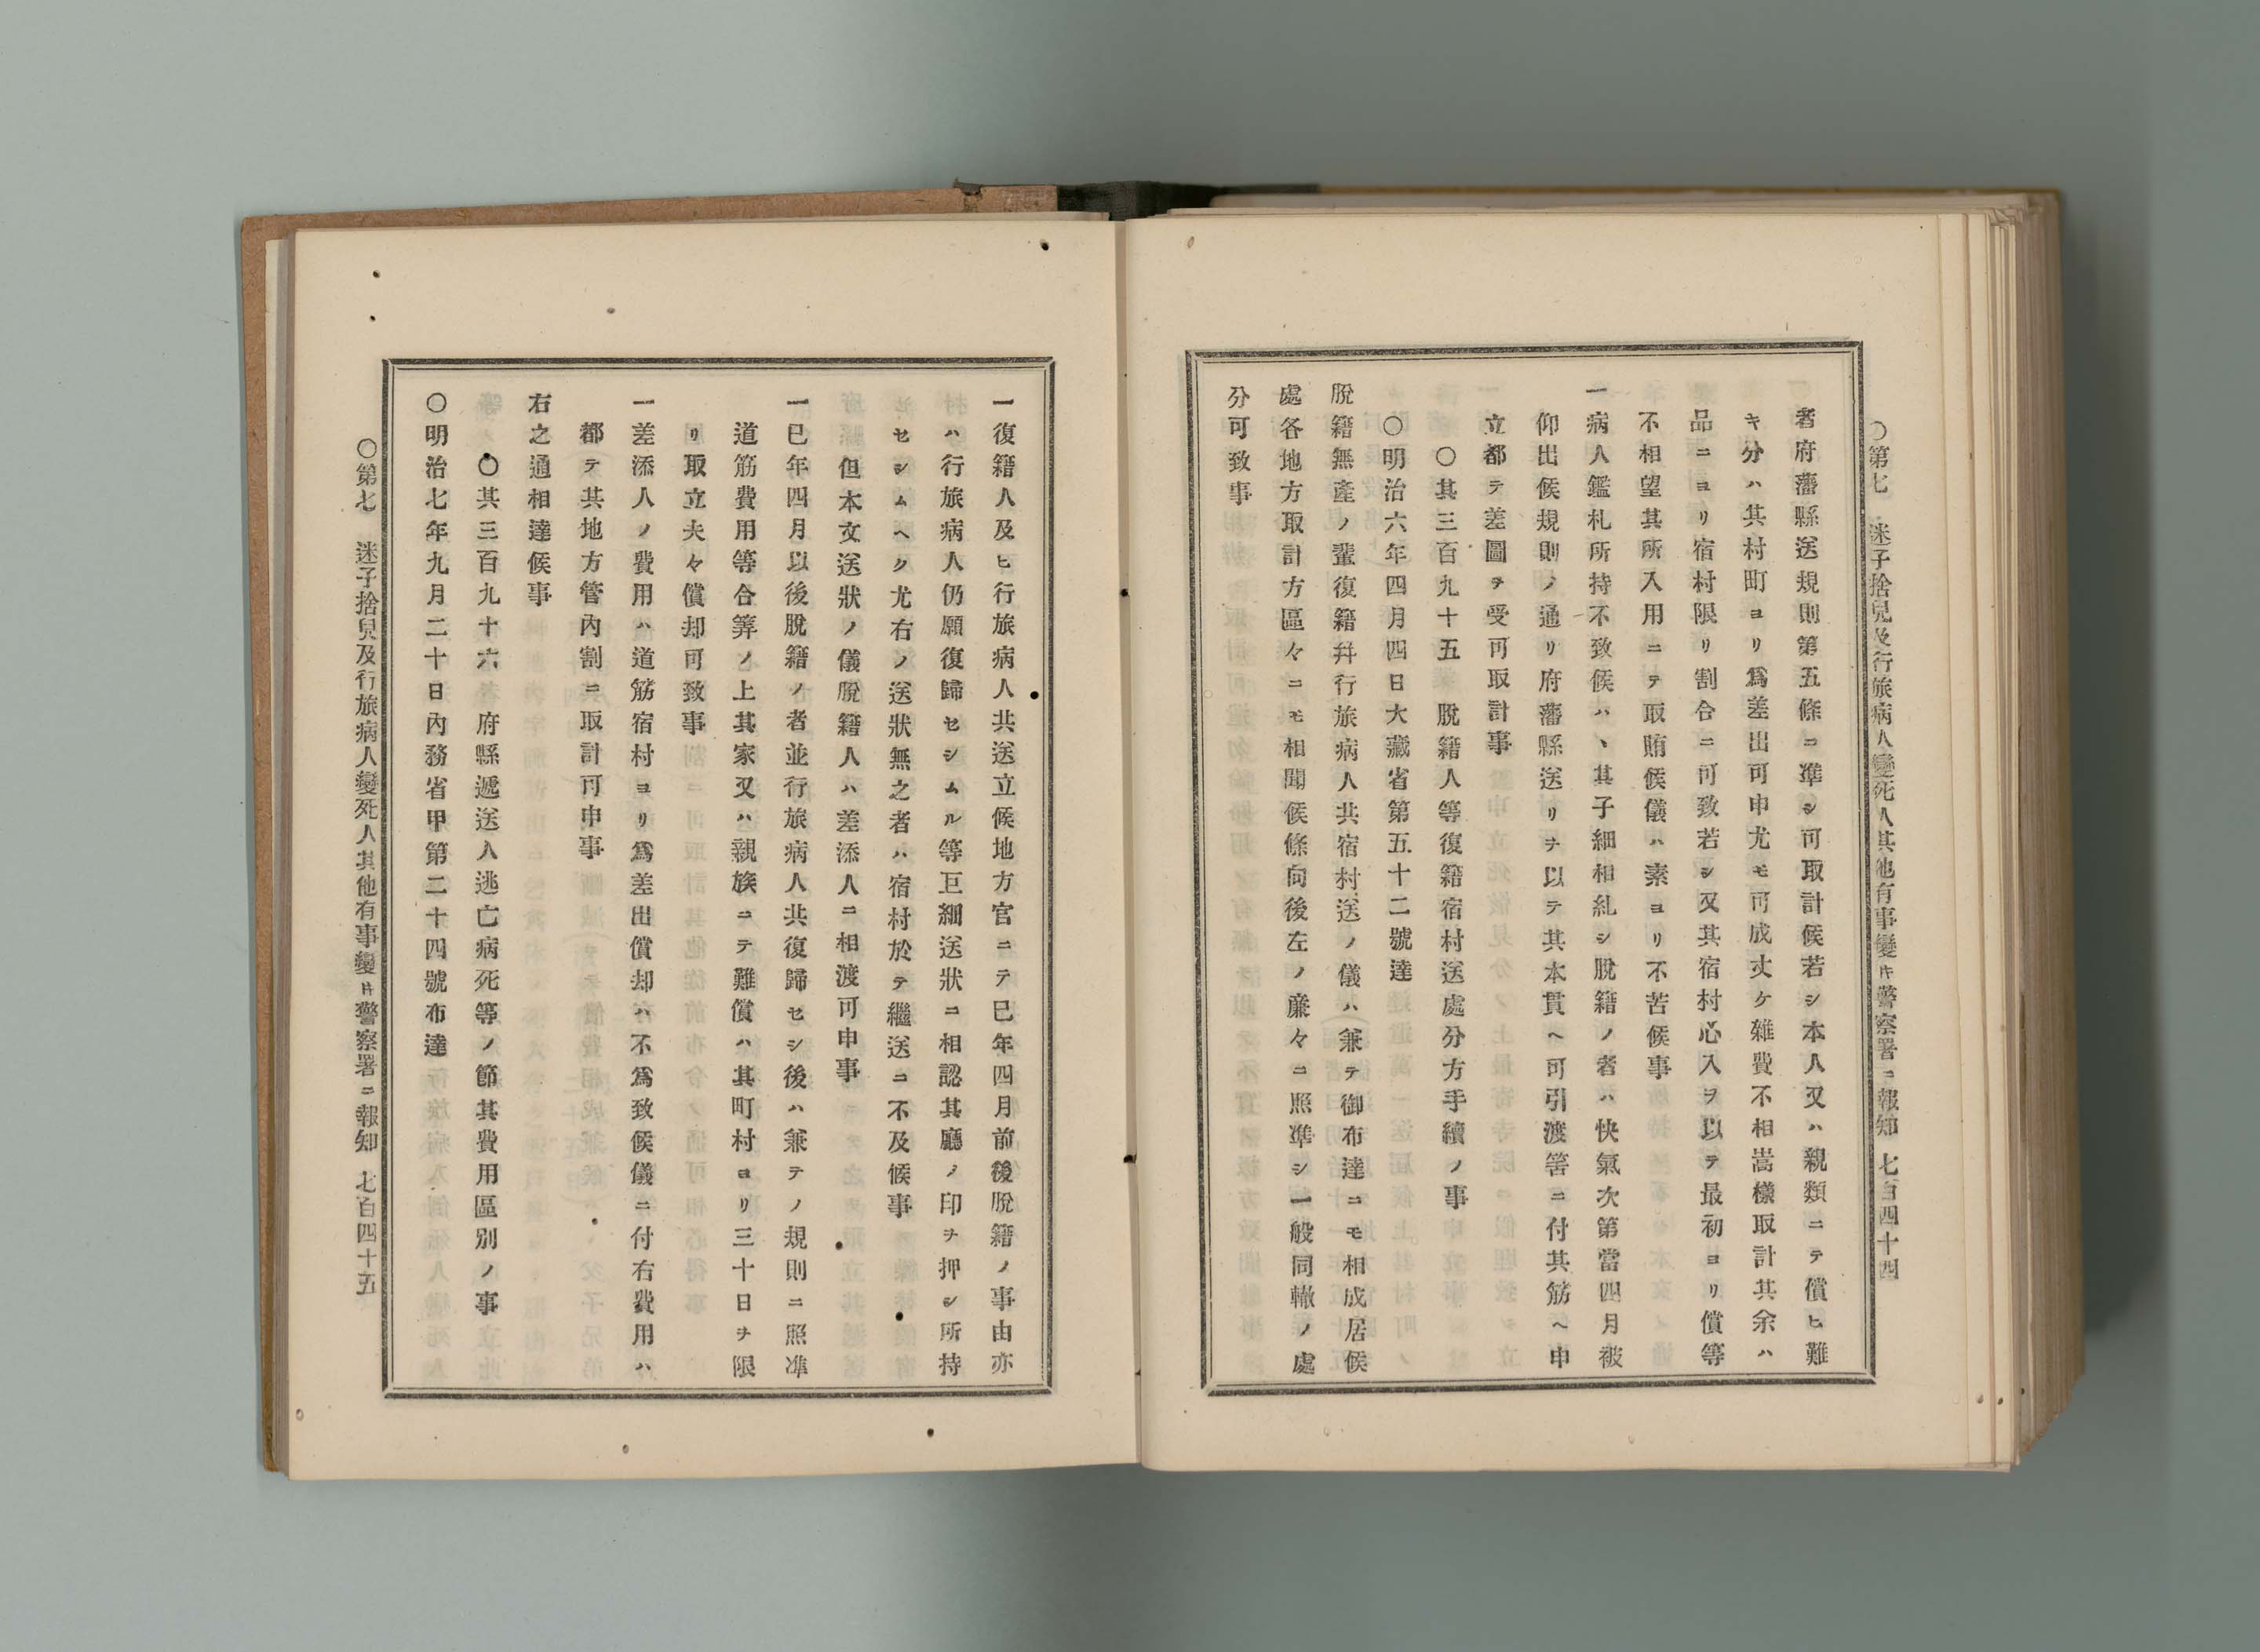 〇第七 迷子捨兒及行旅病人變死人其他有事變ヰ警察署ニ報知 七百四十四
者府藩縣送規則第五條ニ準シ可取計候若シ本人又ハ親類ニテ償ヒ難
キ分ハ其村町ヨリ爲差出可申尤モ可成丈ケ雜費不相嵩樣取計其余ハ
品ニヨリ宿村限リ割合ニ可致若シ又其宿村心入ヲ以テ最初ヨリ償等
不相望其所入用ニテ取賄候儀ハ素ヨリ不苦候事
一病人鑑札所持不致候ハヽ其子細相糺シ脫籍ノ者ハ快氣次第當四月被
仰出候規則ノ通リ府藩縣送リヲ以テ其本貫ヘ可引渡筈ニ付其筋ヘ申
立都テ差圖ヲ受可取計事
〇其三百九十五 脫籍人等復籍宿村送處分方手續ノ事
〇明治六年四月四日大藏省第五十二號達
脫籍無產ノ輩復籍幷行旅病人共宿村送ノ儀ハ兼テ御布達ニモ相成居候
處各地方取計方區々ニモ相聞候條向後左ノ廉々ニ照準シ一般同轍ノ處
分可致事
一復籍人及ヒ行旅病人共送立候地方官ニテ巳年四月前後脫籍ノ事由亦
ハ行旅病人仍願復歸セシムル等巨細送狀ニ相認其廳ノ印ヲ押シ所持
セセシムヘク尤右ノ送狀無之者ハ宿村於テ繼送ニ不及候事
但本文送狀ノ儀脫籍人ハ差添人ニ相渡可申事
一巳年四月以後脫籍ノ者並行旅病人共復歸セシ後ハ兼テノ規則ニ照準
道筋費用等合筭ノ上其家又ハ親族ニテ難償ハ其町村ヨリ三十日ヲ限
リ取立夫々償却可致事
一差添人ノ費用ハ道筋宿村ヨリ爲差出償却ハ不爲致候儀ニ付右費用ハ
都テ其地方管內割ニ取計可申事
右之通相達候事
〇其三百九十六 府縣遞送人逃亡病死等ノ節其費用區別ノ事
〇明治七年九月二十日內務省甲第二十四號布達
〇第七 迷子捨兒及行旅病人變死人其他有事變ヰ警察署ニ報知 七百四十五